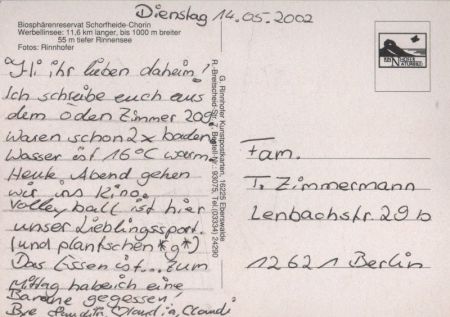 Dienstag 14.05.2002
Biosphärenreservat Schorfheide-Chorin
Werbellinsee: 11,6 km langer, bis 1000 m breiter
55 m tiefer Rinnensee
Fotos: Rinnhofer
Hi ihr lieben daheim!
Ich schreibe euch aus
dem öden Zimmer 209.
Waren schon 2x baden
Wasser ist 16°C warm.
Heute Abend gehen
wir ins Kino.
Volleyball ist hier
unser Lieblingssport.
(und plantschen *g*)
Das Essen ist... zum
Mittag habe ich eine
Banane gegessen!
Bye Claudia, Claudi
G. Rinnhofer Kunstpostkarten, 16225 Eberswalde
R.-Breitscheid-Str. Tel. (03334) 24290
Fam.
T. Zimmermann
Lenbachstr. 29 b
12621 Berlin